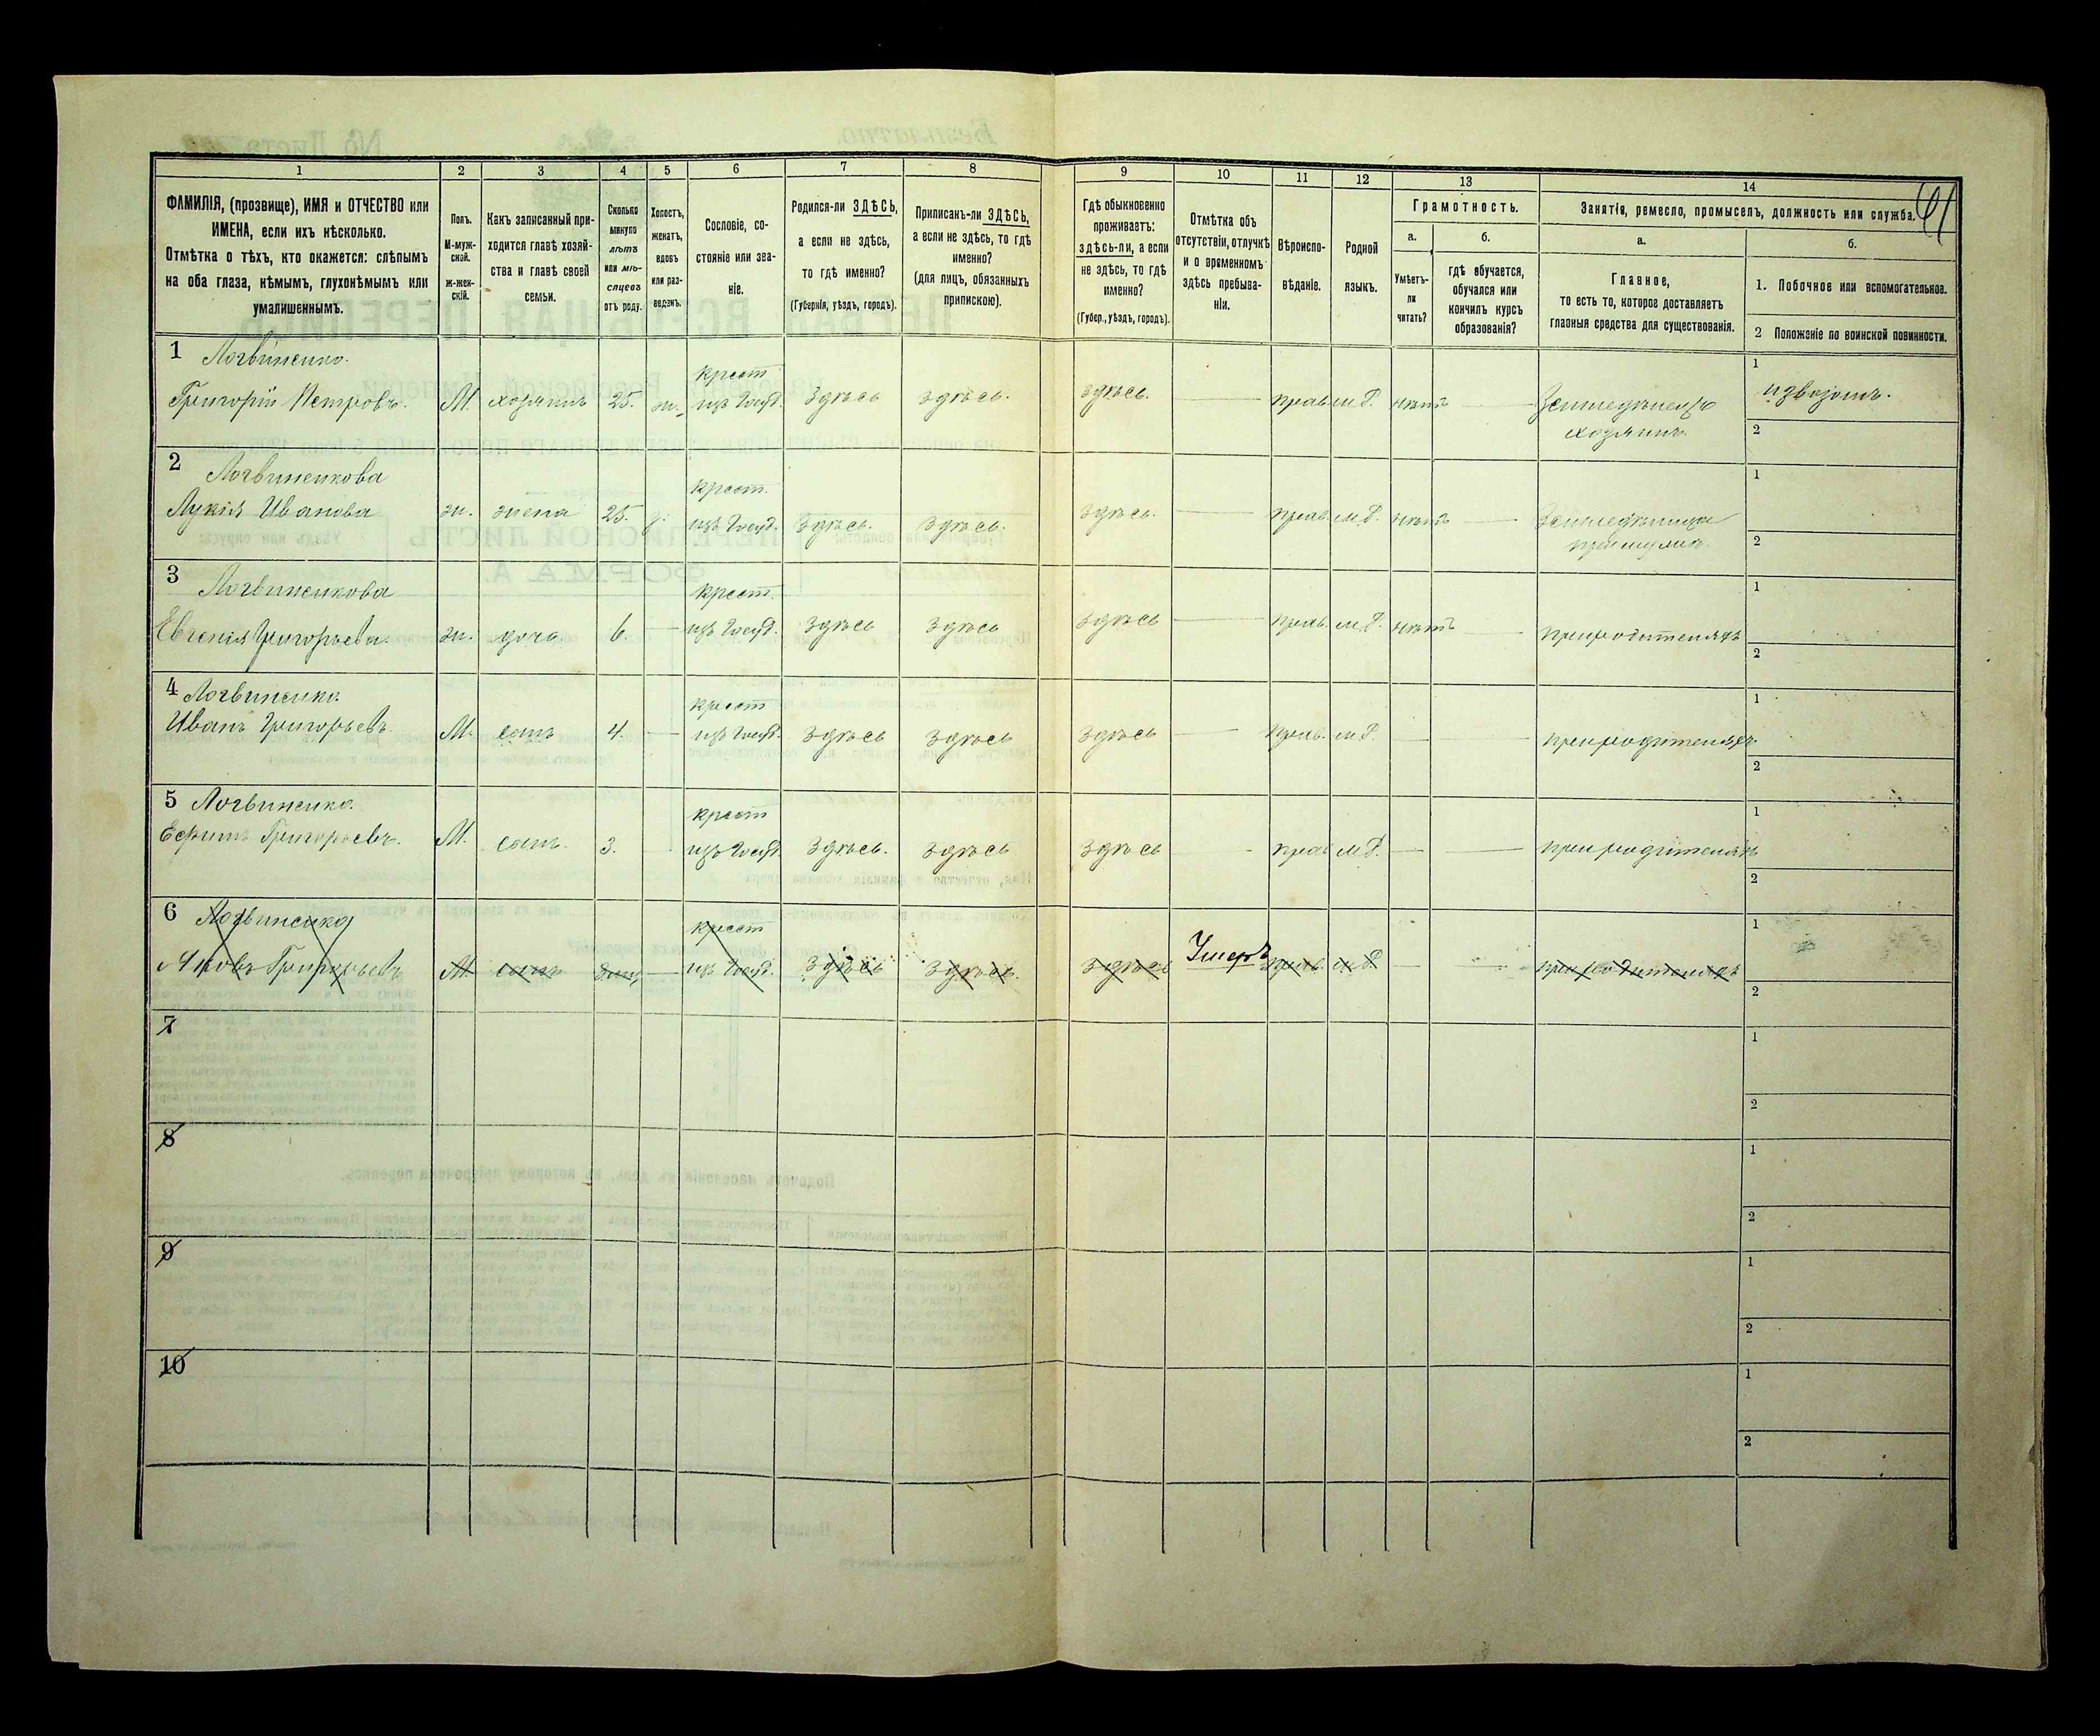 1
2
3
4
5
6
7
8
9
10
11
12
13
14
ФАМИЛІЯ, (прозвище), ИМЯ и ОТЧЕСТВО или
ИМЕНА, если ихъ нѣсколько.
Отмѣтка о тѣхъ, кто окажется: слѣпымъ
на оба глаза, нѣмымъ, глухонѣмымъ или
умалишеннымъ.
Полъ.
М-муж-
ской.
ж-жен-
скій.
Какъ записанный при-
ходится главѣ хозяй-
ства и главѣ своей
семьи.
Сколько
минуло
лѣтъ
или мѣ-
сяцевъ
отъ роду.
Холостъ,
женатъ,
вдовъ
или раз-
веденъ.
Сословіе, со-
стояніе или зва-
ніе.
Родился-ли ЗДѢСЬ,
а если не здѣсь,
то гдѣ именно?
(Губернія, уѣздъ, городъ).
Приписанъ-ли ЗДѢСЬ,
а если не здѣсь, то гдѣ
именно?
(для лицъ, обязанныхъ
припискою).
Гдѣ обыкновенно
проживаетъ:
здѣсь-ли, а если
не здѣсь, то гдѣ
именно?
(Губер., уѣздъ, городъ).
Отмѣтка объ
отсутствіи, отлучкѣ
и о временномъ
здѣсь пребыва-
ніи.
Вѣроиспо-
вѣданіе.
Родной
языкъ.
Грамотность.
а.
Умѣетъ-
ли
читать?
б.
гдѣ обучается,
обучался или
кончилъ курсъ
образованія?
Занятія, ремесло, промыселъ, должность или служба.
61
а.
Главное,
то есть то, которое доставляетъ
главныя средства для существованія.
б.
1. Побочное или вспомогательное.
2 Положеніе по воинской повинности.
1 Логвиненко.
Григорій Петровъ.
М.
хозяинъ
25.
ж.
крест
изъ Госуд.
Здѣсь
здѣсь.
здѣсь.
прав.
м.Р.
нѣтъ
Земледѣлецъ
хозяинъ.
1
извозомъ.
2
2 Логвиненкова
Лукія Иванова
ж.
жена
25.
з.
крест.
изъ Госуд.
Здѣсь.
здѣсь.
здѣсь.
прав.
м.Р.
нѣтъ
Земледѣлица
при мужѣ.
1
2
3 Логвиненкова
Евгенія Григорьева.
ж.
дочь.
6.
крест.
изъ Госуд.
Здѣсь
Здѣсь
здѣсь
прав.
м.Р.
нѣтъ
при родителяхъ
1
2
4 Логвиненко.
Иванъ Григорьевъ.
М.
сынъ
4.
крест
изъ Госуд.
здѣсь
здѣсь
здѣсь
прав.
м.Р.
при родителяхъ
1
2
5 Логвиненко.
Ефимъ Григорьевъ.
М.
сынъ.
3.
крест
изъ Госуд.
Здѣсь.
здѣсь
здѣсь
прав
м.Р.
при родителяхъ
1
2
6 Логвиненко
Яковъ Григорьевъ
М.
сынъ
крест
изъ Госуд.
Здѣсь
здѣсь.
здѣсь
Умеръ
прав.
м.Р.
при родителяхъ
1
2
7
1
2
8
1
2
9
1
2
10
1
2